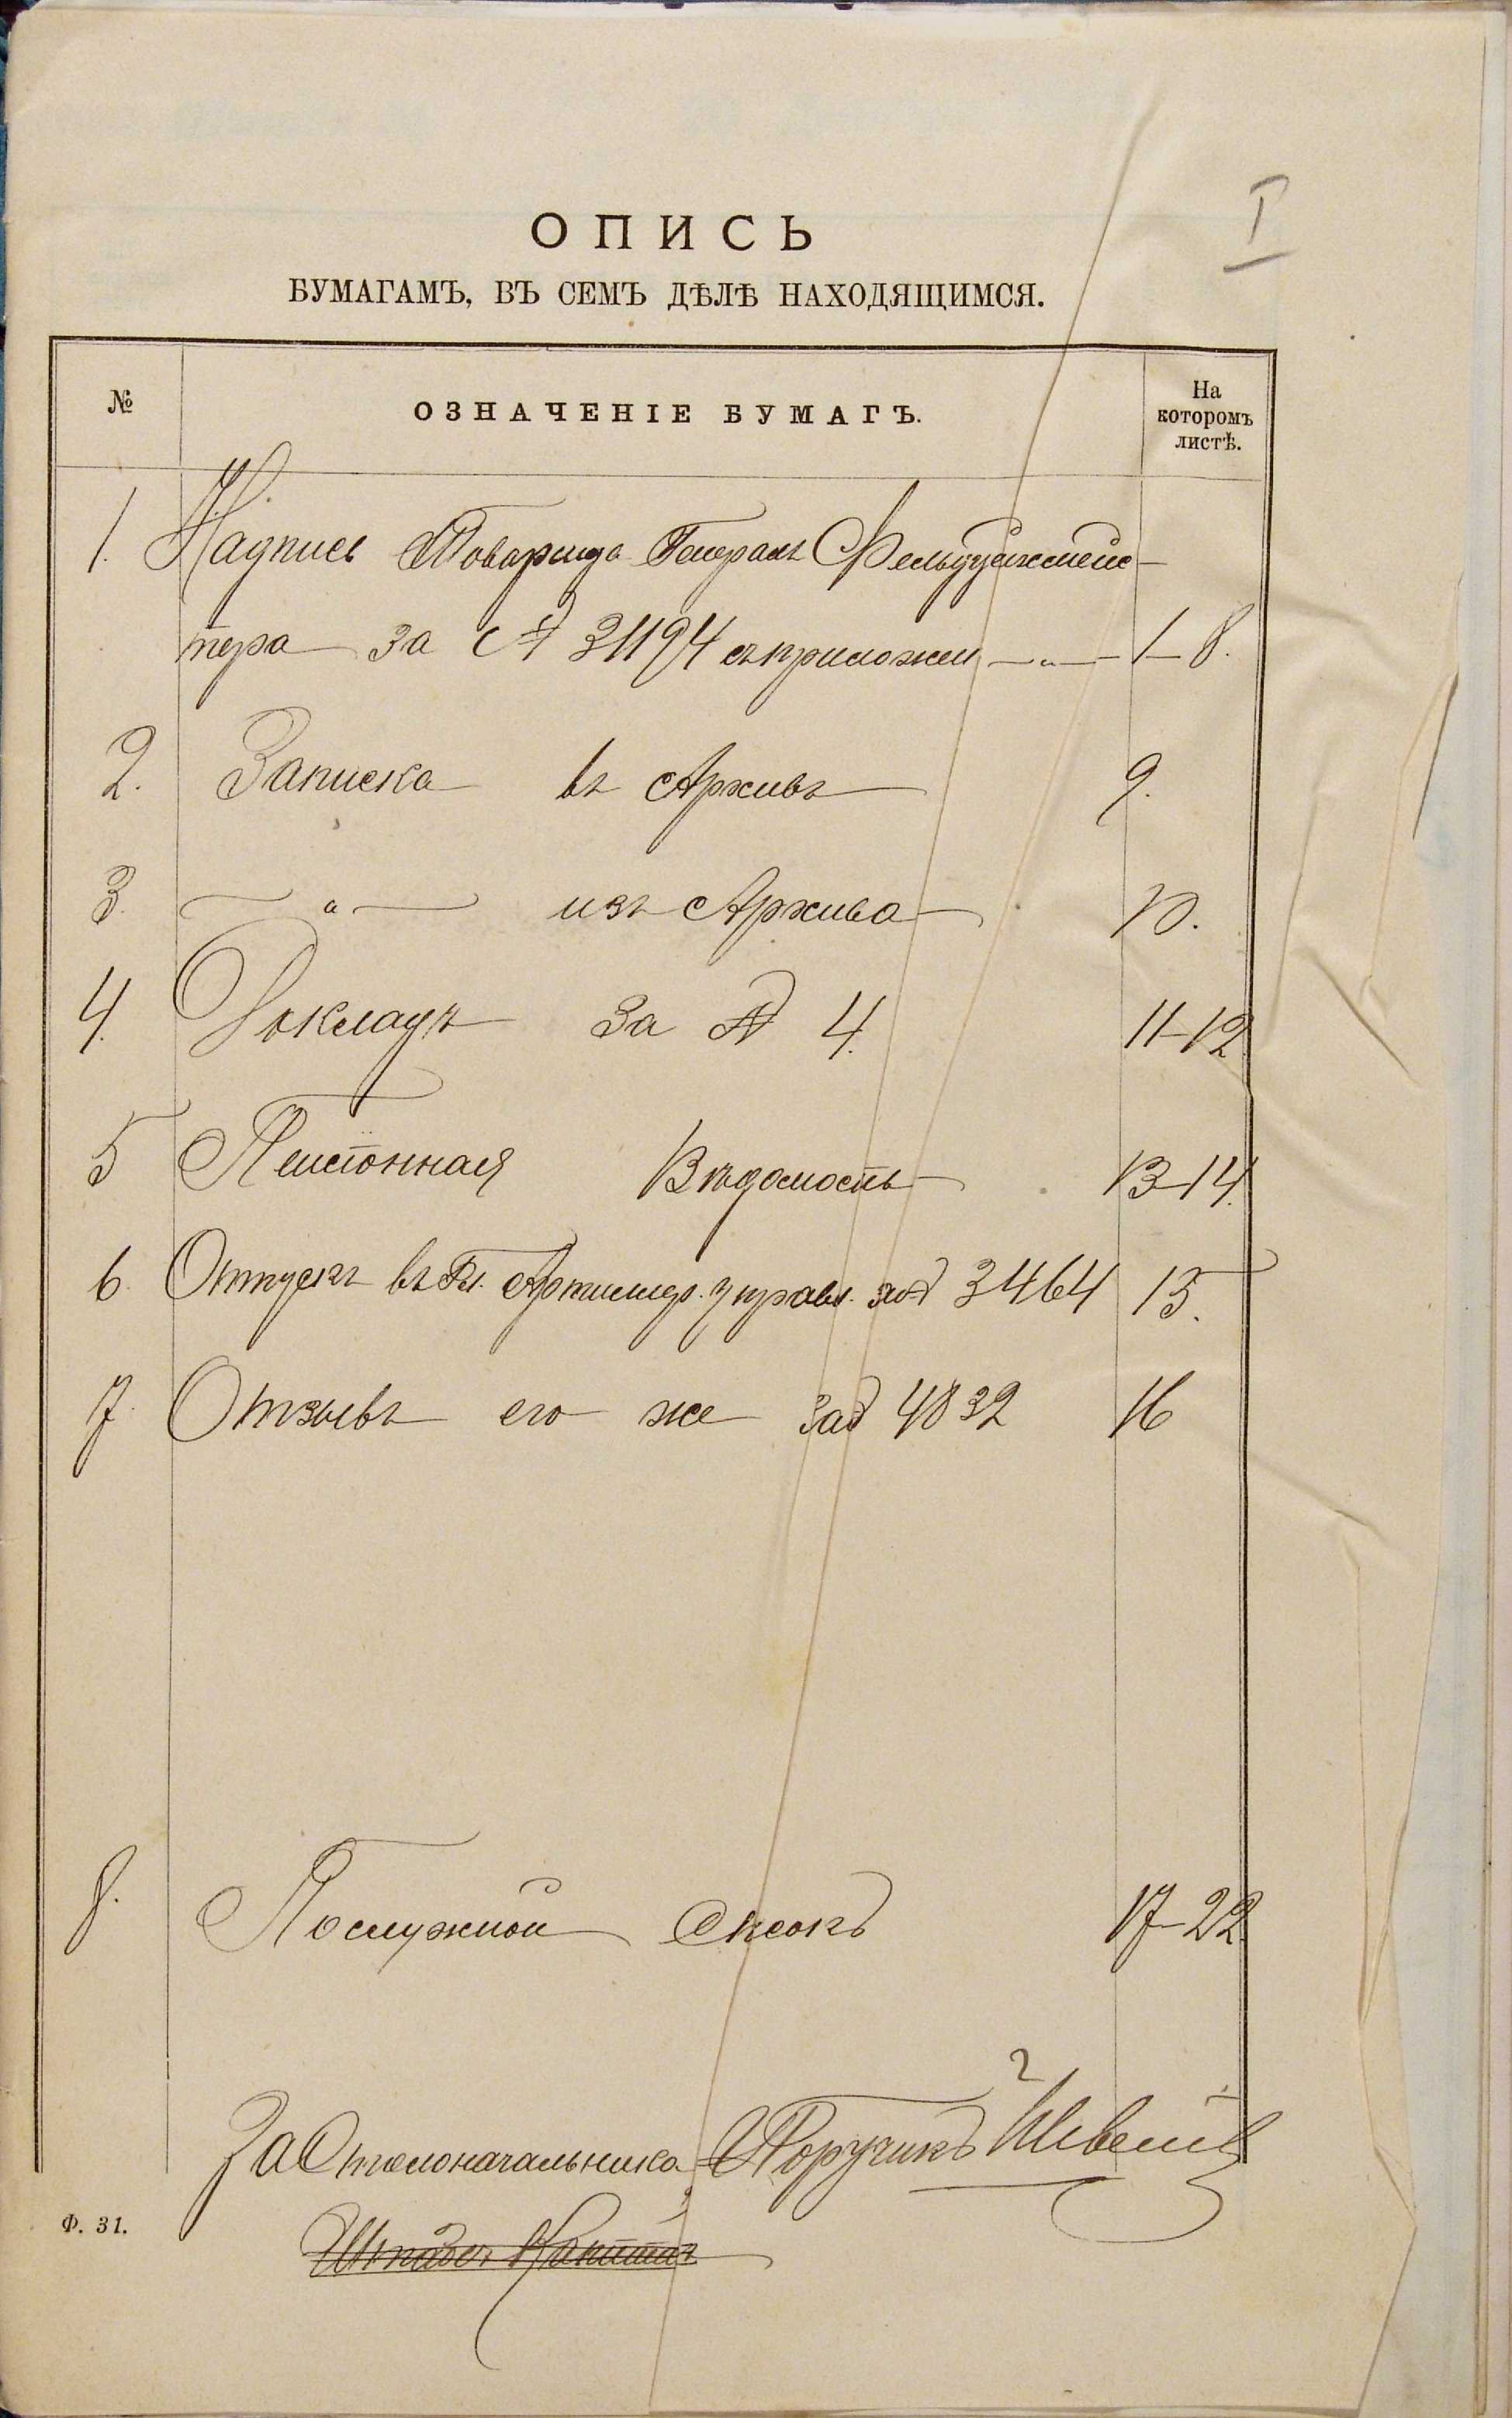 I
ОПИСЬ
БУМАГАМЪ, ВЪ СЕМЪ ДѢЛѢ НАХОДЯЩИМСЯ.
№ ОЗНАЧЕНІЕ БУМАГЪ. На которомъ листѣ.
1. Надпись Товарища Генералъ Фельдцейхмейс-
тера за № 31194 съ приложен. — „ — 1–8.
2. Записка въ Архивъ 9.
3. — „ — изъ Архива 10.
4. Докладъ за № 4. 11–12
5 Пенсіонная Вѣдомость 13–14.
6. Отпускъ въ Гл. Артиллер. управл. за № 3464 15.
7. Отзывъ его же за № 4832 16
8. Послужной списокъ 17–22.
За Столоначальника Поручикъ
Штабсъ Капитан
Ф. 31.